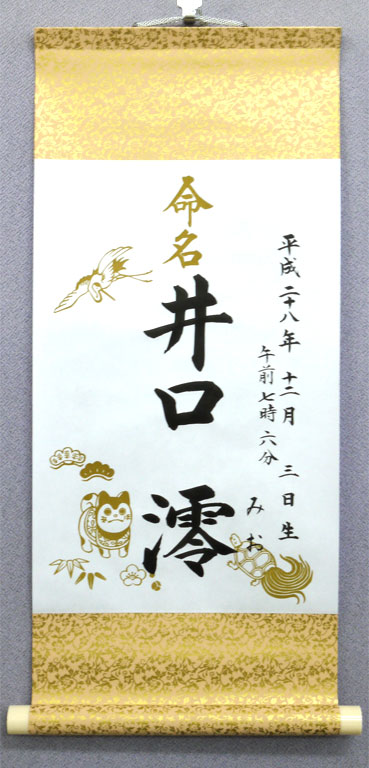 平成二十八年 十二月 三日生
午前七時六分
みお
命名
井口 澪